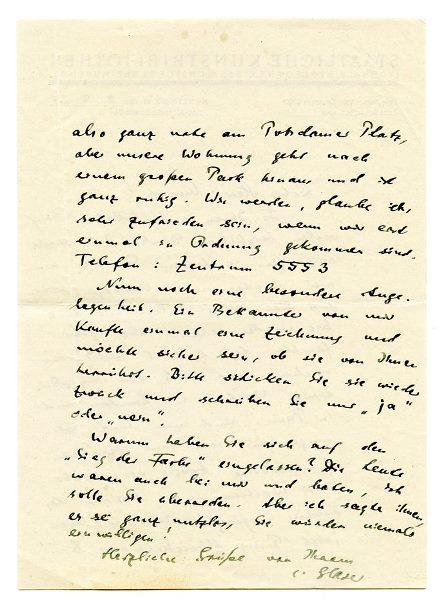 STAATLICHE KUNSTBIBLIOTHEK
also ganz nahe am Potsdamer Platz,
aber unsere Wohnung geht nach
einem großen Park hinaus und ist
ganz ruhig. Wir werden, glaube ich,
sehr zufrieden sein, wenn wir erst
einmal in Ordnung gekommen sind.
Telefon: Zentrum 5553
Nun noch eine besondere Ange-
legenheit. Ein Bekannter von mir
kaufte einmal eine Zeichnung und
möchte sicher sein, ob sie von Ihnen
herrührt. Bitte schicken Sie sie wieder
zurück und schreiben Sie nur „ja"
oder „nein".
Warum haben Sie sich auf den
„Sieg der Farbe" eingelassen? Die Leute
waren auch bei mir und baten, ich
solle Sie überreden. Aber ich sagte ihnen,
es sei ganz nutzlos, Sie würden niemals
einwilligen!
Herzliche Grüße von Ihrem
C. Glaser